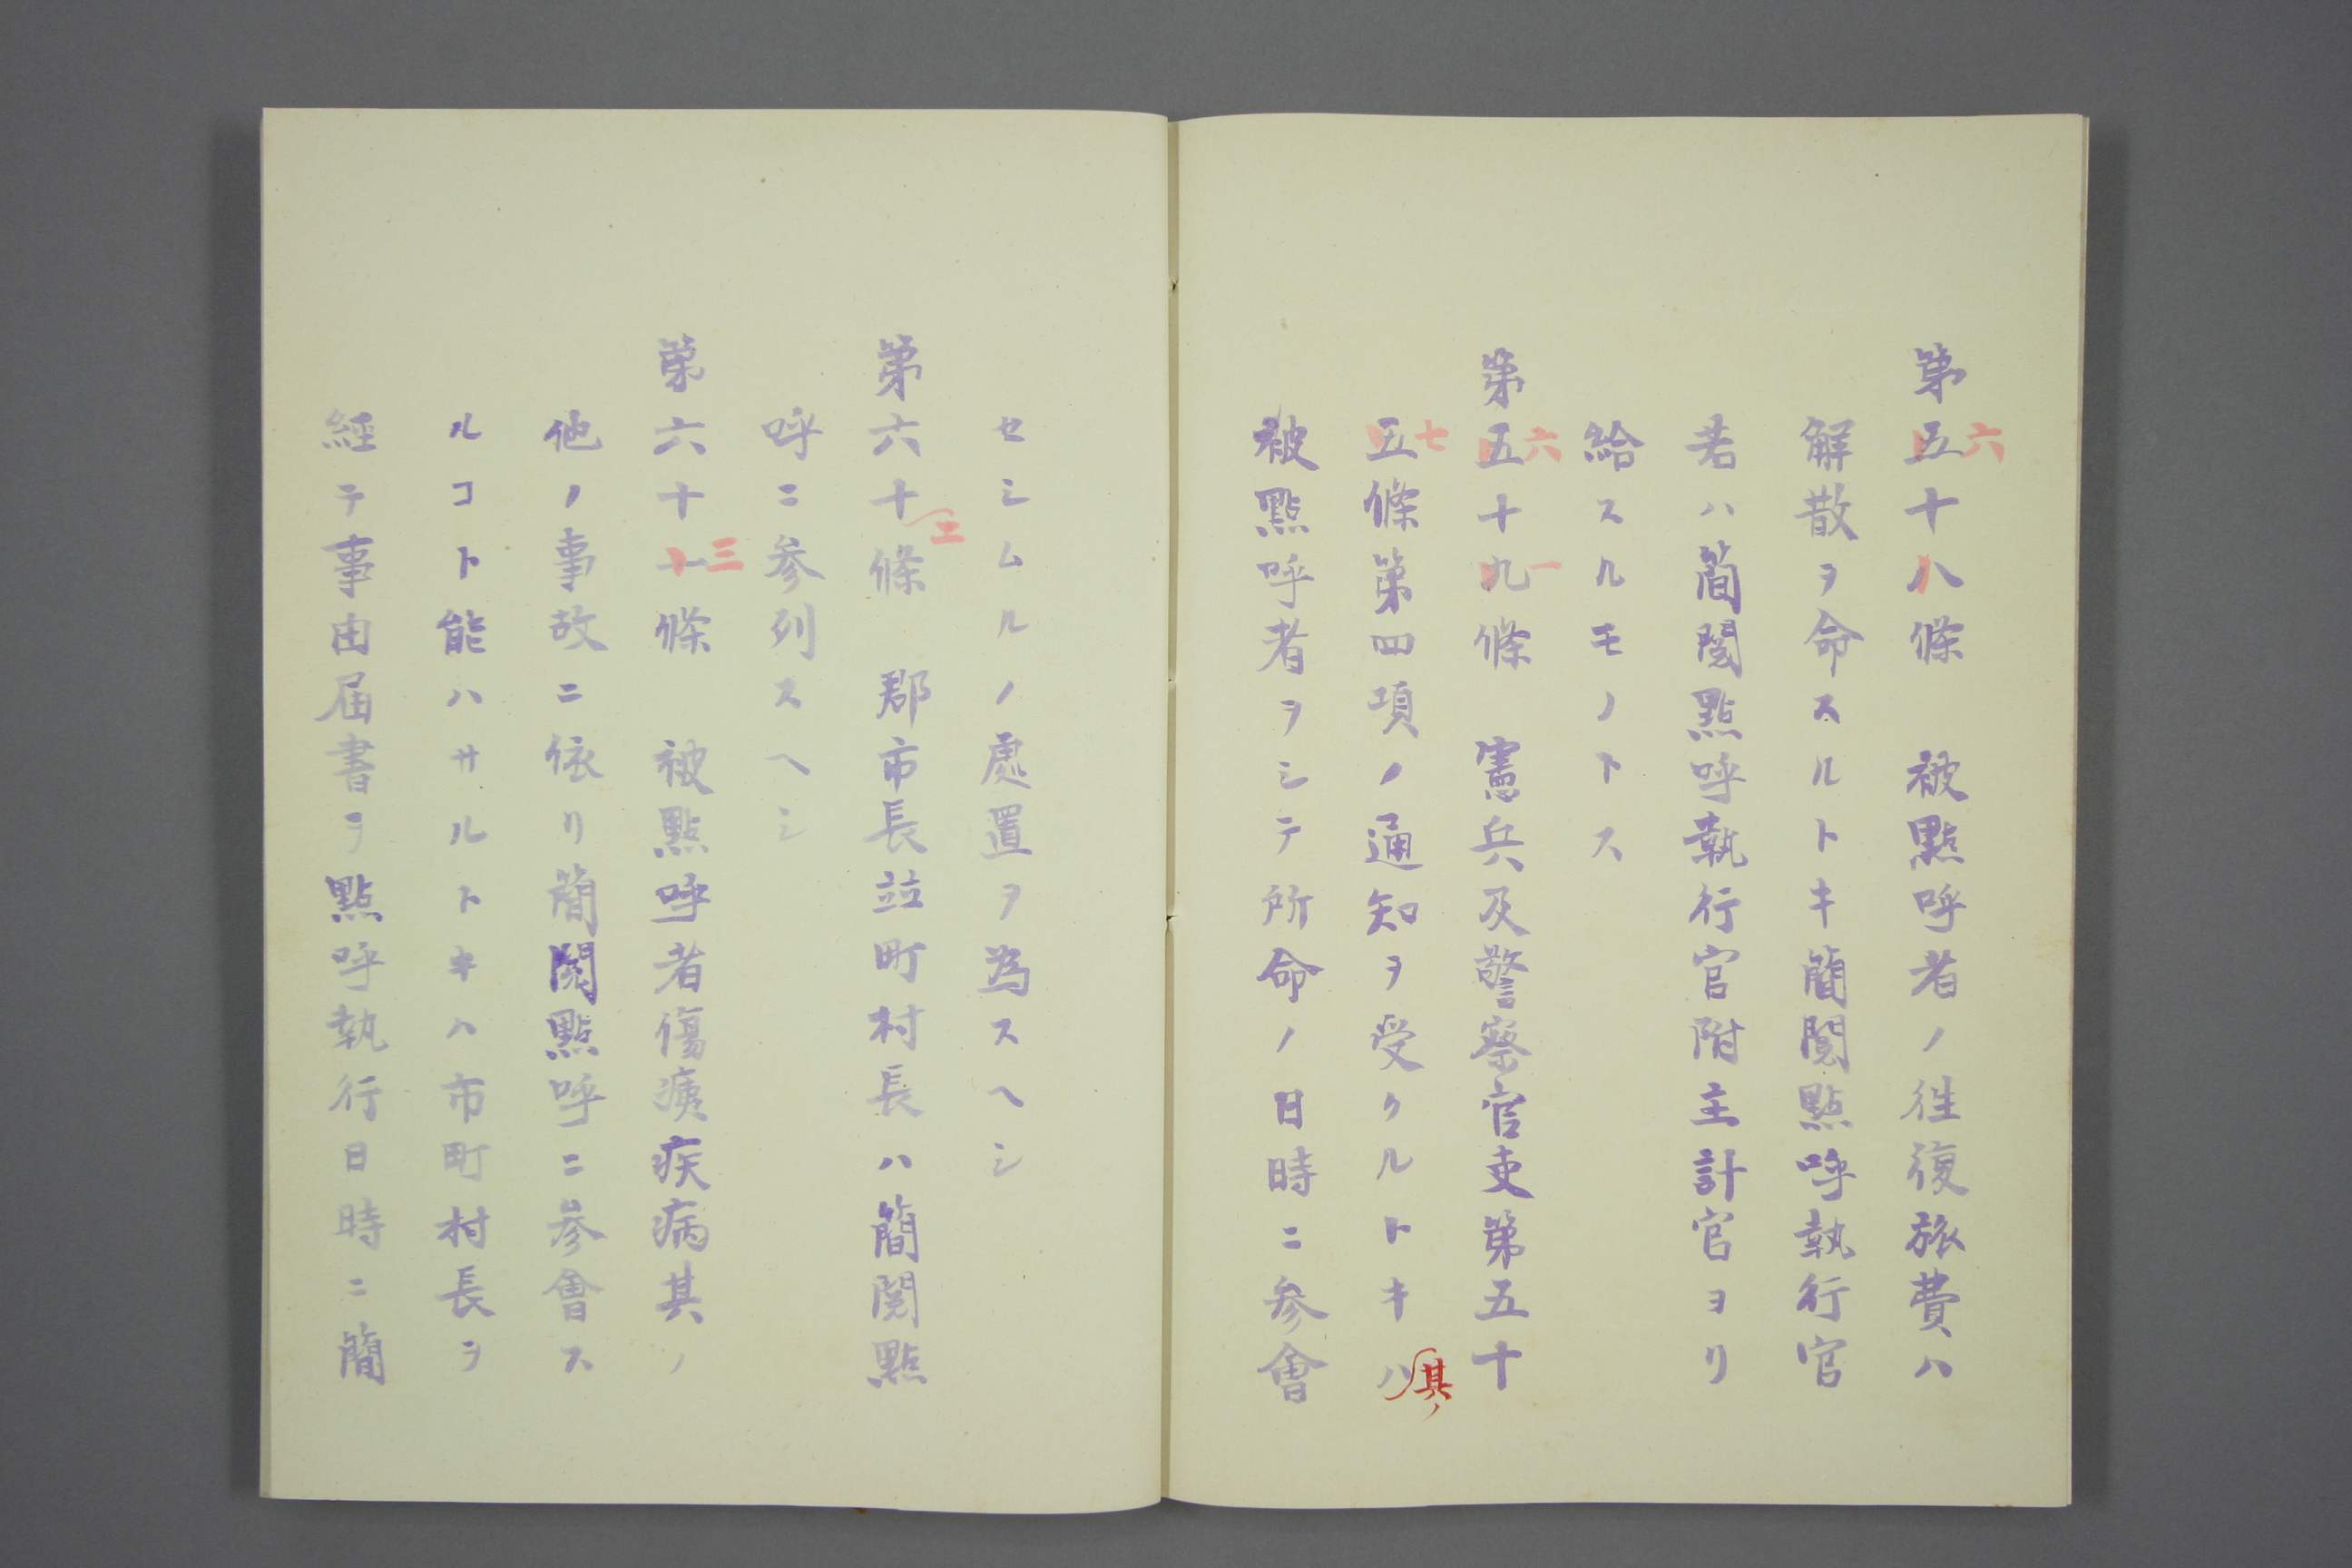 第五十八條　被點呼者ノ往復旅費ハ
六
解散ヲ命スルトキ簡閲點呼執行官
若ハ簡閲點呼執行官附主計官ヨリ
給スルモノトス
第五十九條　憲兵及警察官吏第五十
六一
五條第四項ノ通知ヲ受クルトキハ
七
其ノ
被點呼者ヲシテ所命ノ日時ニ参會
セシムルノ處置ヲ為スヘシ
第六十條　郡市長竝町村長ハ簡閲點
二
呼ニ参列スヘシ
第六十一條　被點呼者傷痍疾病其ノ
三
他ノ事故ニ依リ簡閲點呼ニ参會ス
ルコト能ハサルトキハ市町村長ヲ
經テ事由届書ヲ點呼執行日時ニ簡